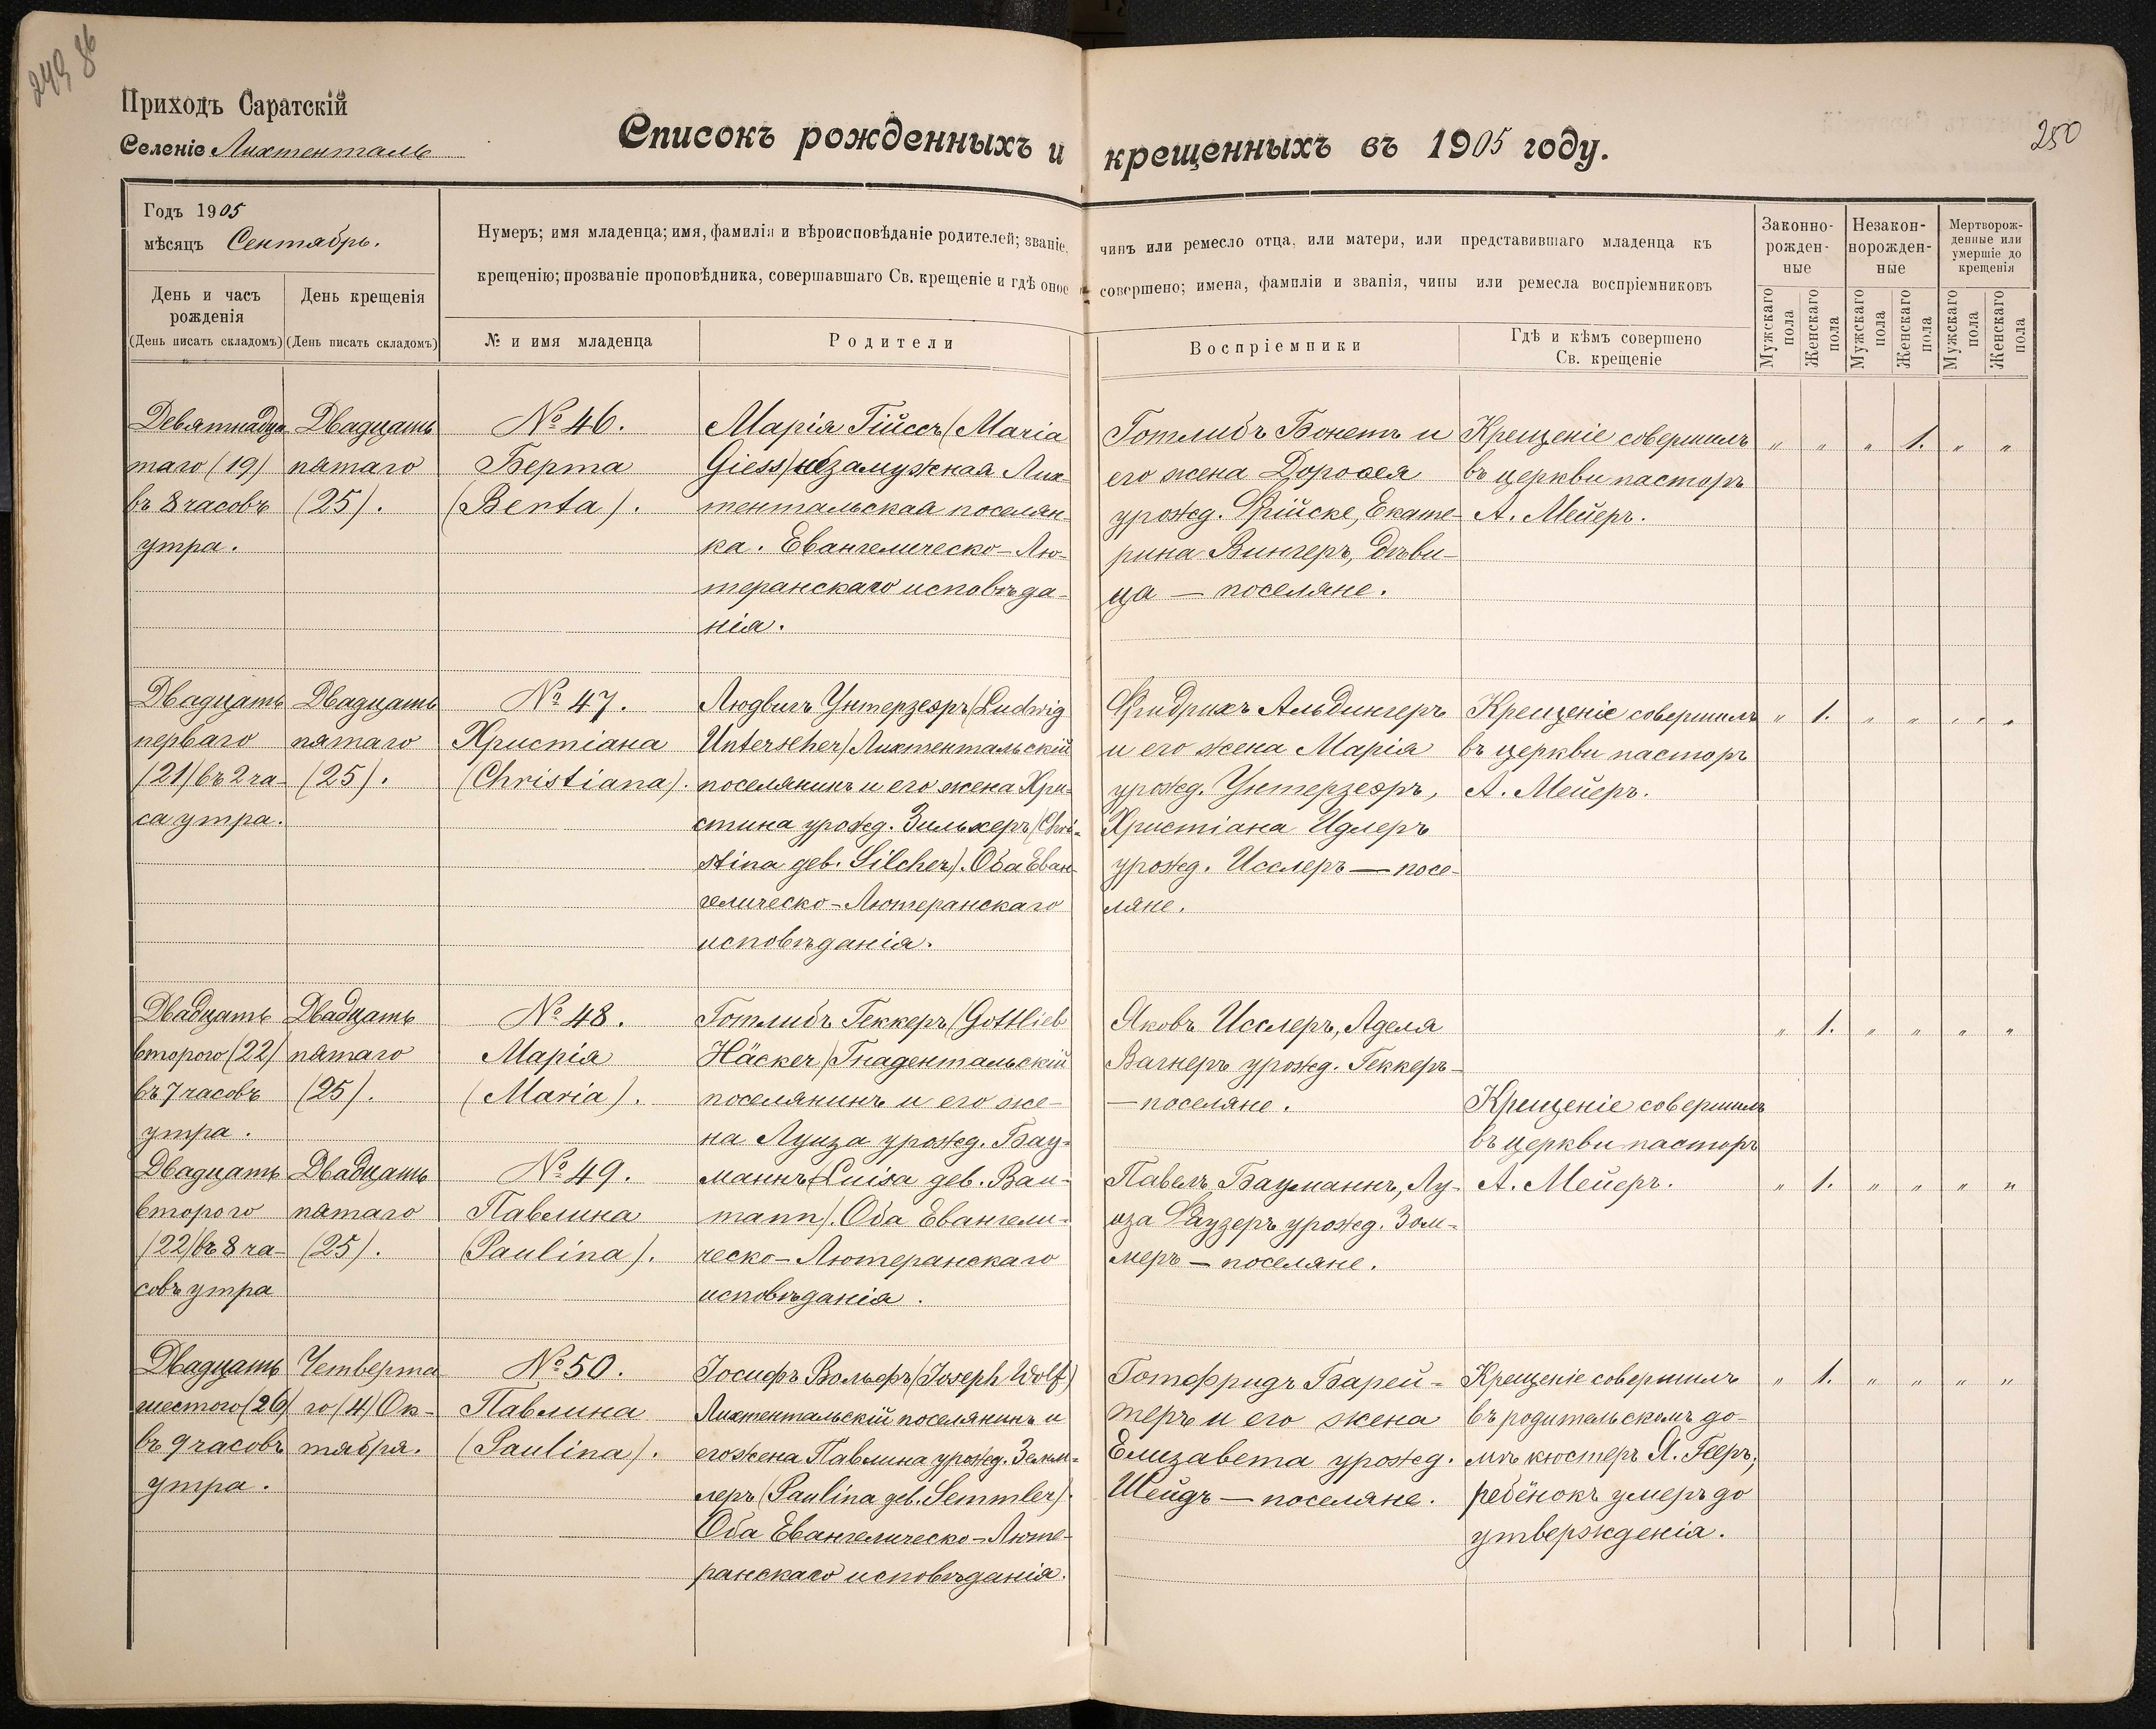 249 86
Приходъ Саратскій
Селеніе Лихтенталь
Списокъ рожденныхъ и крещенныхъ въ 1905 году.
250
Годъ 1905
мѣсяцъ Сентябрь.
День и часъ рожденія
(День писать складомъ)
День крещенія
(День писать складомъ)
Нумеръ; имя младенца; имя, фамилія и вѣроисповѣданіе родителей; званіе, чинъ или ремесло отца, или матери, или представившаго младенца къ
крещенію; прозваніе проповѣдника, совершавшаго Св. крещеніе и гдѣ оное совершено; имена, фамиліи и званія, чины или ремесла воспріемниковъ
№ и имя младенца
Родители
Воспріемники
Гдѣ и кѣмъ совершено
Св. крещеніе
Законно-
рожден-
ные
Незакон-
норожден-
ные
Мертворож-
денные или
умершіе до
крещенія
Мужскаго пола
Женскаго пола
Мужскаго пола
Женскаго пола
Мужскаго пола
Женскаго пола
Девятнадца
таго (19)
въ 8 часовъ
утра.
Двадцать
пятаго
(25).
№ 46.
Берта
(Berta).
Марія Гійссъ (Maria
Giess) незамужная Лих-
тентальская поселян-
ка. Евангелическо-Лю-
теранскаго исповѣда-
нія.
Готлибъ Бонетъ и
его жена Доροѳея
урожд. Фрійске, Екате-
рина Вингеръ, дѣви-
ца — поселяне.
Крещеніе совершилъ
въ церкви пасторъ
А. Мейеръ.
„ „ „ 1. „ „
Двадцать
перваго
(21) въ 2 ча-
са утра.
Двадцать
пятаго
(25).
№ 47.
Христіана
(Christiana).
Людвигъ Унтерзееръ (Ludwig
Unterseher) Лихтентальскій
поселянинъ и его жена Хри-
стина урожд. Зильхеръ (Chri-
stina geb. Silcher). Оба Еван-
гелическо-Лютеранскаго
исповѣданія.
Фридрихъ Альдингеръ
и его жена Марія
урожд. Унтерзееръ,
Христіана Идлеръ
урожд. Исслеръ — посе-
ляне.
Крещеніе совершилъ
въ церкви пасторъ
А. Мейеръ.
„ 1. „ „ „ „
Двадцать
второго (22)
въ 7 часовъ
утра.
Двадцать
пятаго
(25).
№ 48.
Марія
(Maria).
Готлибъ Геккеръ (Gottlieb
Häcker) Гнадентальскій
поселянинъ и его же-
на Луиза урожд. Бау-
маннъ (Luisa geb. Bau-
mann). Оба Евангели-
ческо-Лютеранскаго
исповѣданія.
Яковъ Исслеръ, Адела
Вагнеръ урожд. Геккеръ —
— поселяне.
Крещеніе совершилъ
въ церкви пасторъ
А. Мейеръ.
„ 1. „ „ „ „
Двадцать
второго
(22) въ 8 ча-
совъ утра
Двадцать
пятаго
(25).
№ 49.
Павлина
(Paulina).
Павелъ Бауманнъ, Лу-
иза Раузеръ урожд. Зом-
меръ — поселяне.
„ 1. „ „ „ „
Двадцать
шестого (26)
въ 9 часовъ
утра.
Четверта
го (4) Ок-
тября.
№ 50.
Павлина
(Paulina).
Іосифъ Вольфъ (Joseph Wolf)
Лихтентальскій поселянинъ и
его жена Павлина урожд. Земм-
леръ (Paulina geb. Semmler).
Оба Евангелическо-Люте-
ранскаго исповѣданія.
Готфридъ Барей-
теръ и его жена
Елизавета урожд.
Шейдъ — поселяне.
Крещеніе совершилъ
въ родительскомъ до-
мѣ кюстеръ Я. Гееръ,
ребёнокъ умеръ до
утвержденія.
„ 1. „ „ „ „